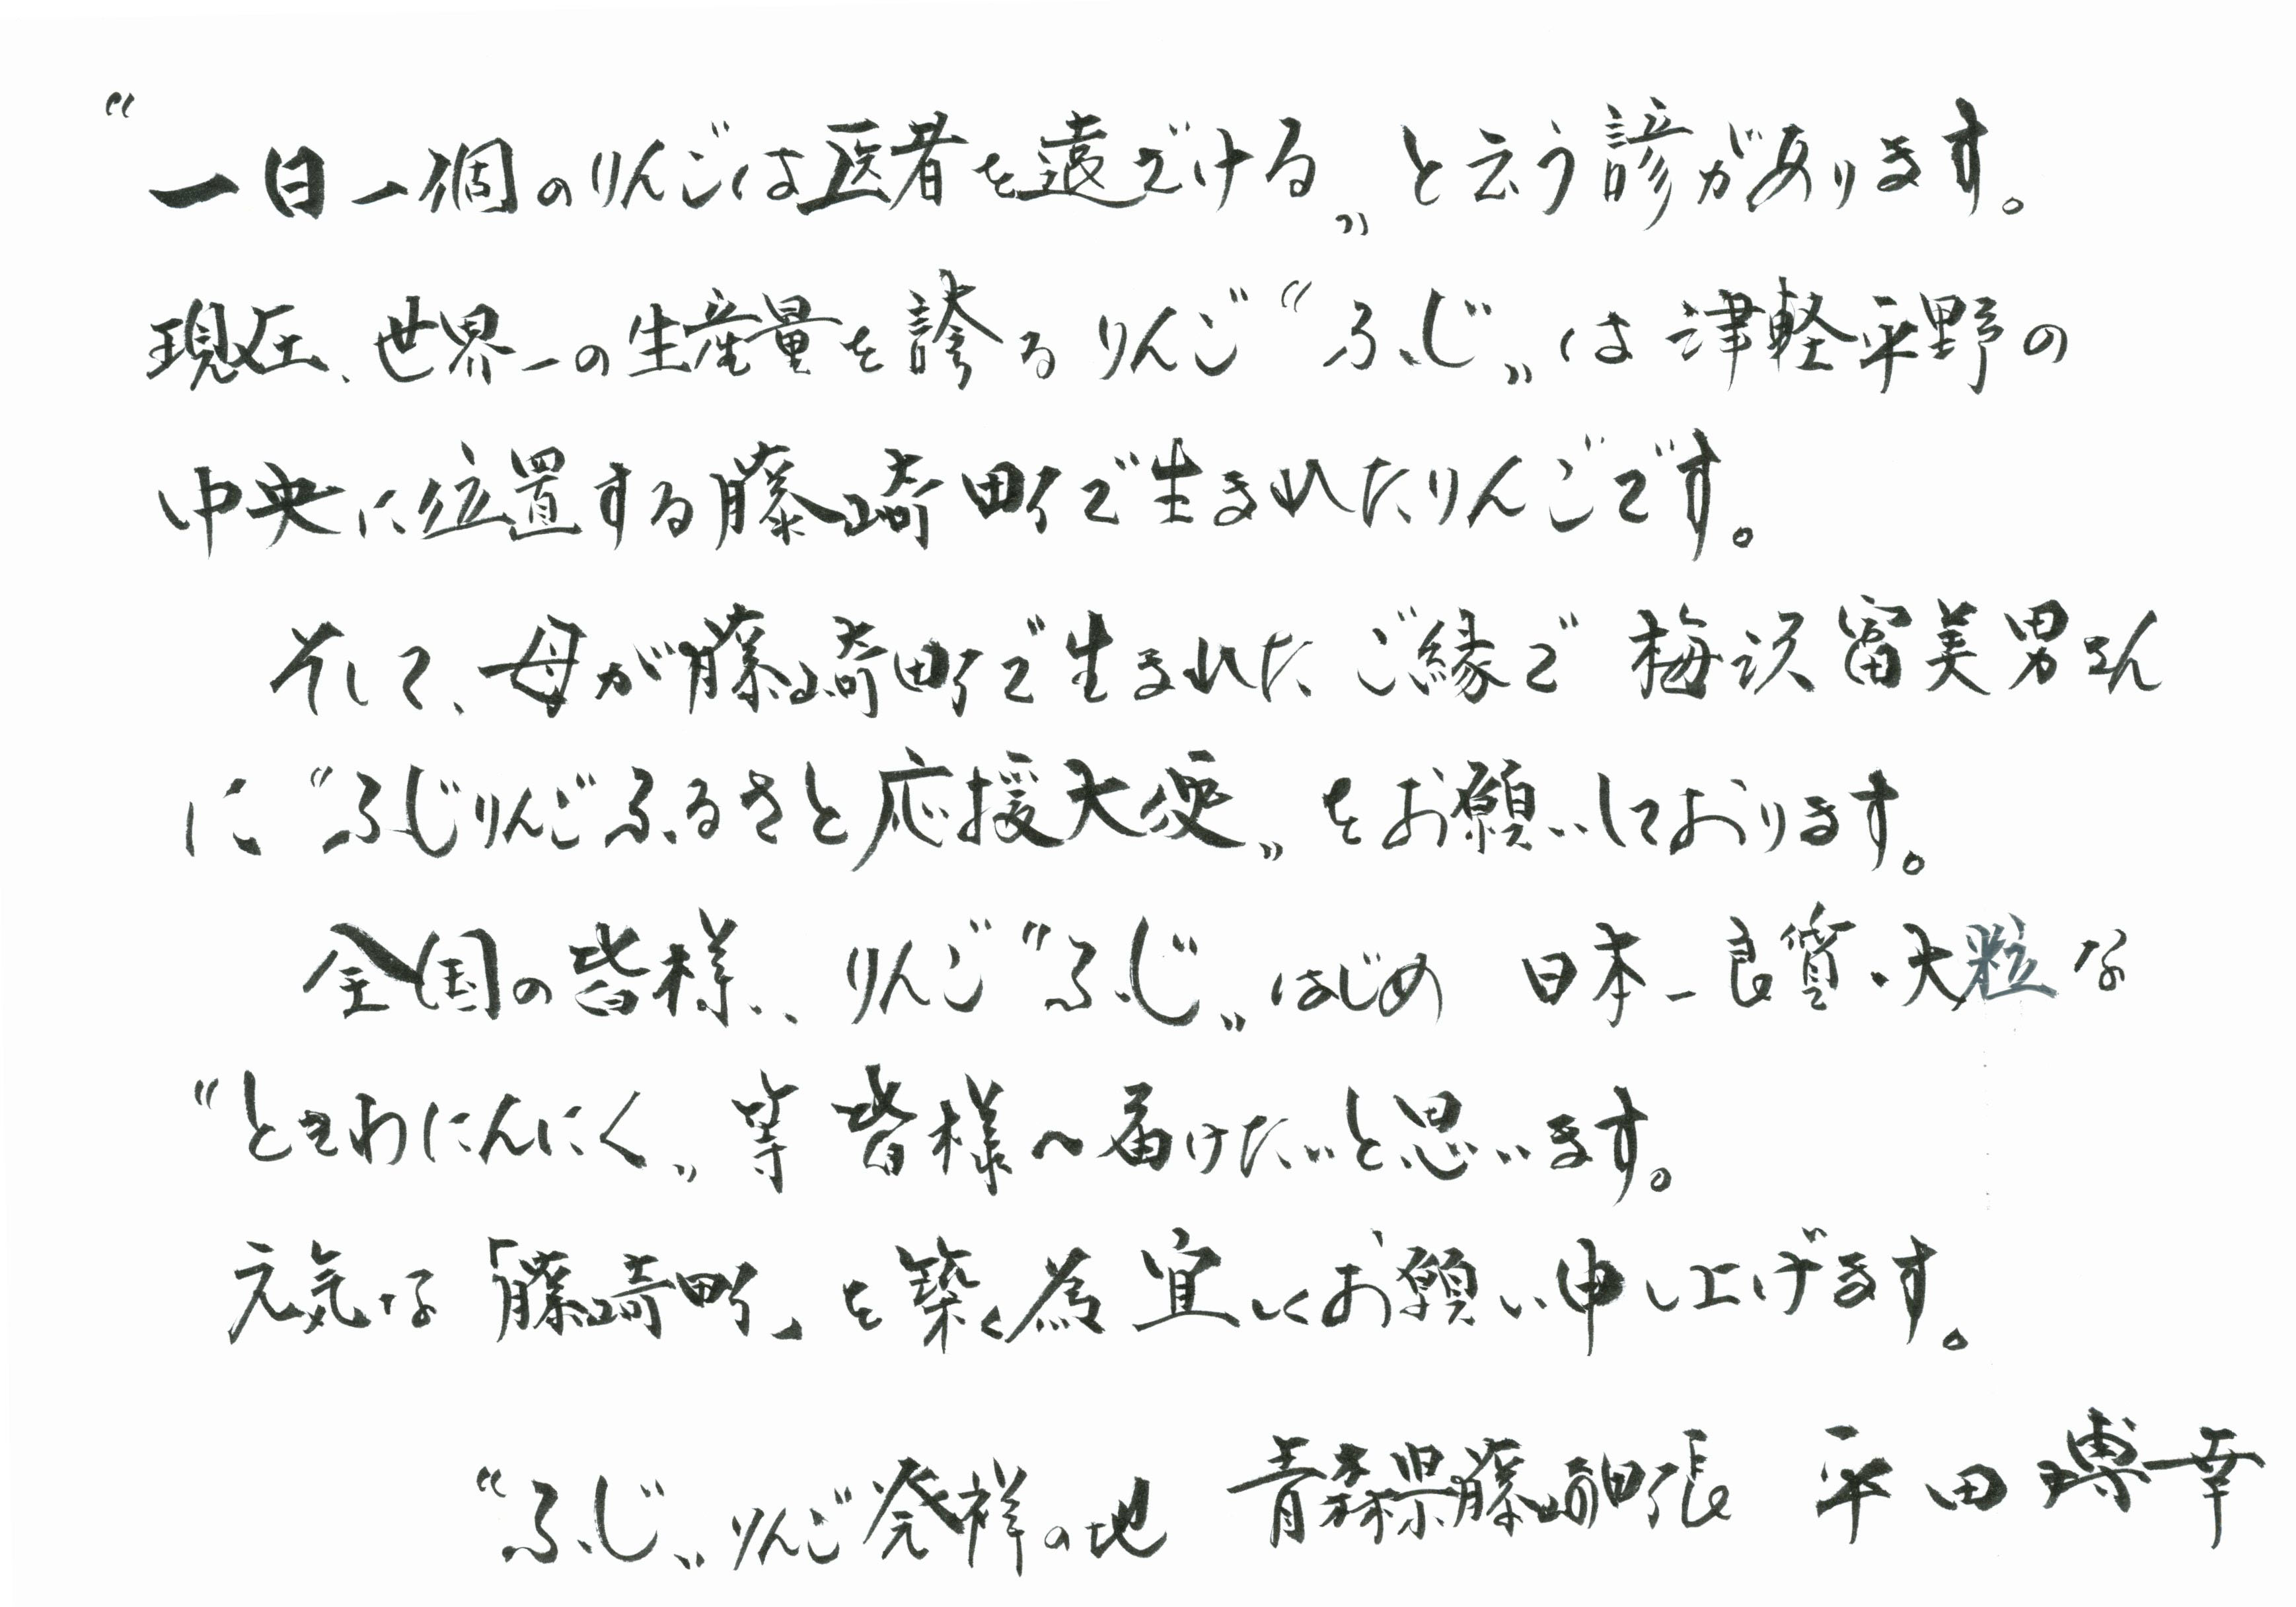 “一日一個のりんごは医者を遠ざける„と云う諺があります。
現在、世界一の生産量を誇るりんご“ふじ„は津軽平野の
中央に位置する藤崎町で生まれたりんごです。
そして、母が藤崎町で生まれたご縁で梅沢富美男さん
に“ふじりんごふるさと応援大使„をお願いしております。
全国の皆様へ、りんご“ふじ„はじめ 日本一良質・大粒な
“ときわにんにく„等 皆様へ届けたいと思います。
元気な「藤崎町」を築く為宜しくお願い申し上げます。
“ふじ„りんご発祥の地 青森県藤崎町長 平田博幸